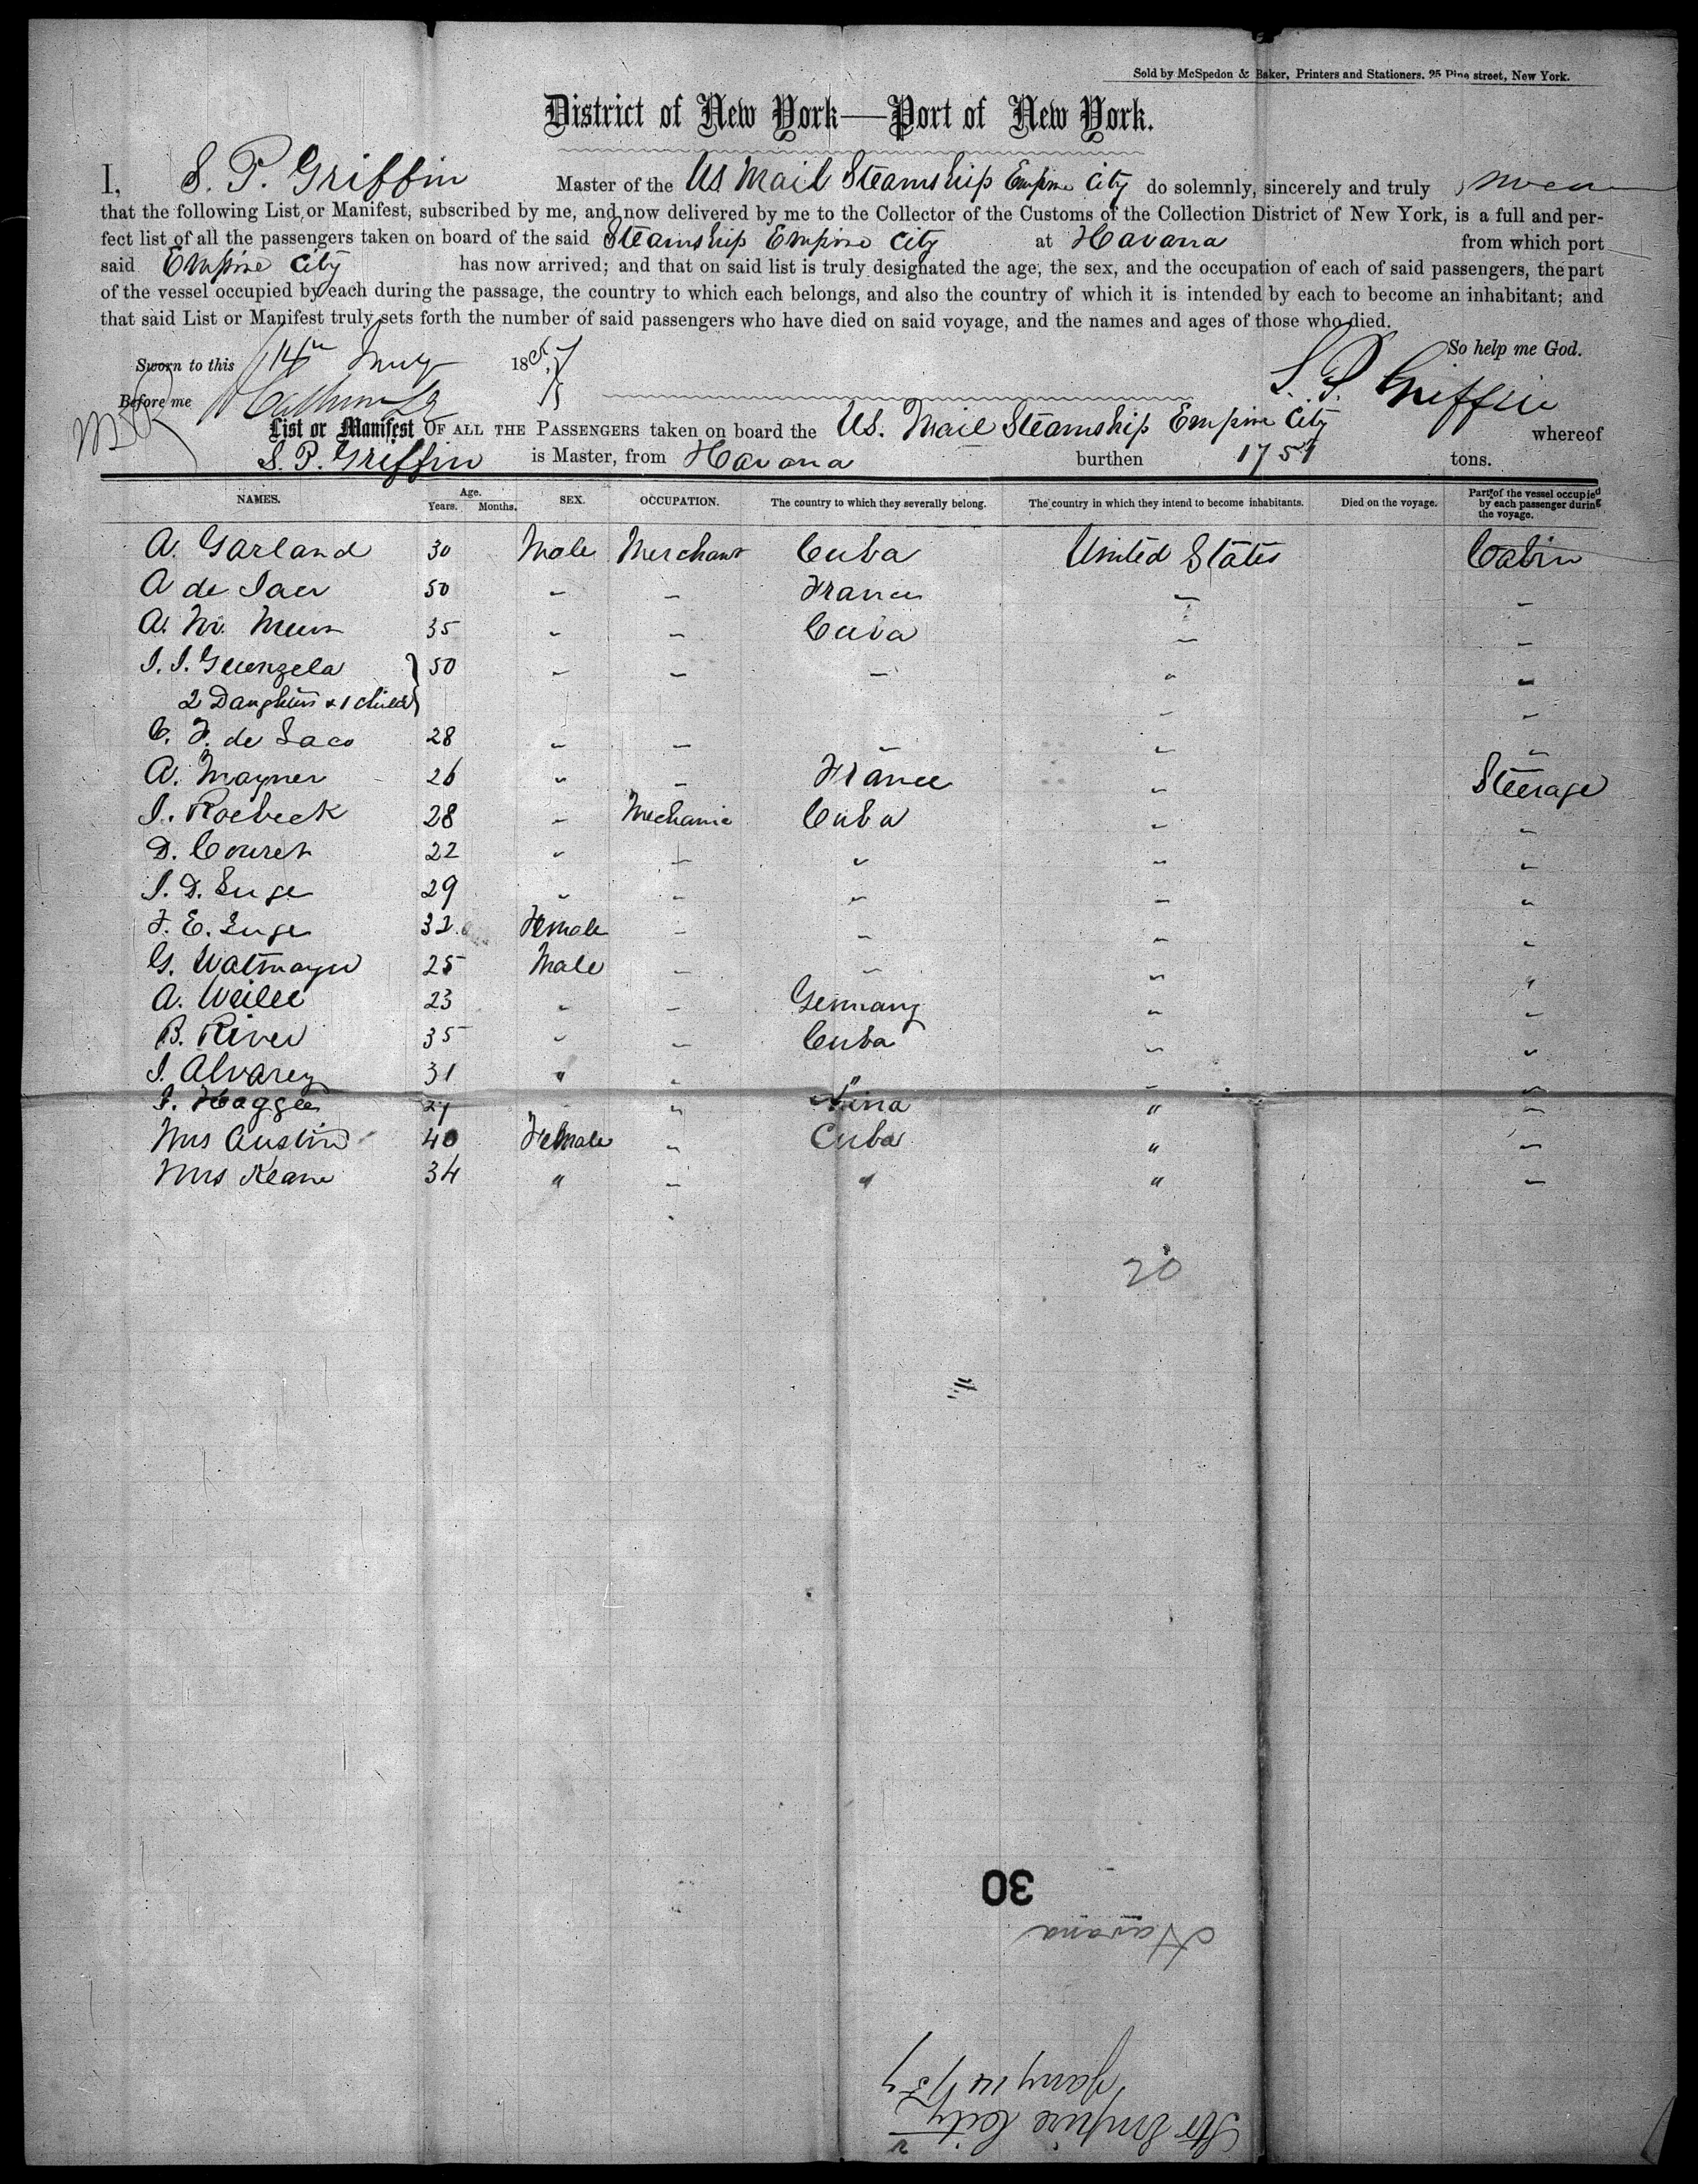 Sold by McSpedon & Baker, Printers and Stationers. 25 Pine street, New York.
District of New York—Port of New York.
I, S. P. Griffin Master of the US Mail Steamship Empire City do solemnly, sincerely and truly swear
that the following List or Manifest, subscribed by me, and now delivered by me to the Collector of the Customs of the Collection District of New York, is a full and per-
fect list of all the passengers taken on board of the said Steamship Empire City at Havana from which port
said Empire City has now arrived; and that on said list is truly designated the age, the sex, and the occupation of each of said passengers, the part
of the vessel occupied by each during the passage, the country to which each belongs, and also the country of which it is intended by each to become an inhabitant; and
that said List or Manifest truly sets forth the number of said passengers who have died on said voyage, and the names and ages of those who died.
So help me God.
Sworn to this 14th Jany 1857
S. P. Griffin
Before me
List or Manifest OF ALL THE PASSENGERS taken on board the US. Mail Steamship Empire City whereof
S. P. Griffin is Master, from Havana burthen 1751 tons.
NAMES. Age. Years. Months. SEX. OCCUPATION. The country to which they severally belong. The country in which they intend to become inhabitants. Died on the voyage. Part of the vessel occupied by each passenger during the voyage.
A. Garland 30 Male Merchant Cuba United States Cabin
A de 50 " " France " "
A. 35 " " Cuba " "
J. J. Guenzela 50 " " " " "
2 Daughters & 1 child " "
C. F. de Saco 28 " " " " "
A. Mayner 26 " " France " Steerage
J. Roebeck 28 " Mechanic Cuba " "
D. Couret 22 " " " " "
J. D. Luge 29 " " " " "
F. E. Luge 32 Female " " " "
G. Watmayer 25 Male " " " "
A. Weilee 23 " " Germany " "
B. River 35 " " Cuba " "
J. Alvarez 31 " " " " "
J. Hagger 27 " " " "
Mrs Austin 40 Female " Cuba " "
Mrs Keane 34 " " " " "
20
30
Havana
Jany 14/57
Str Empire City